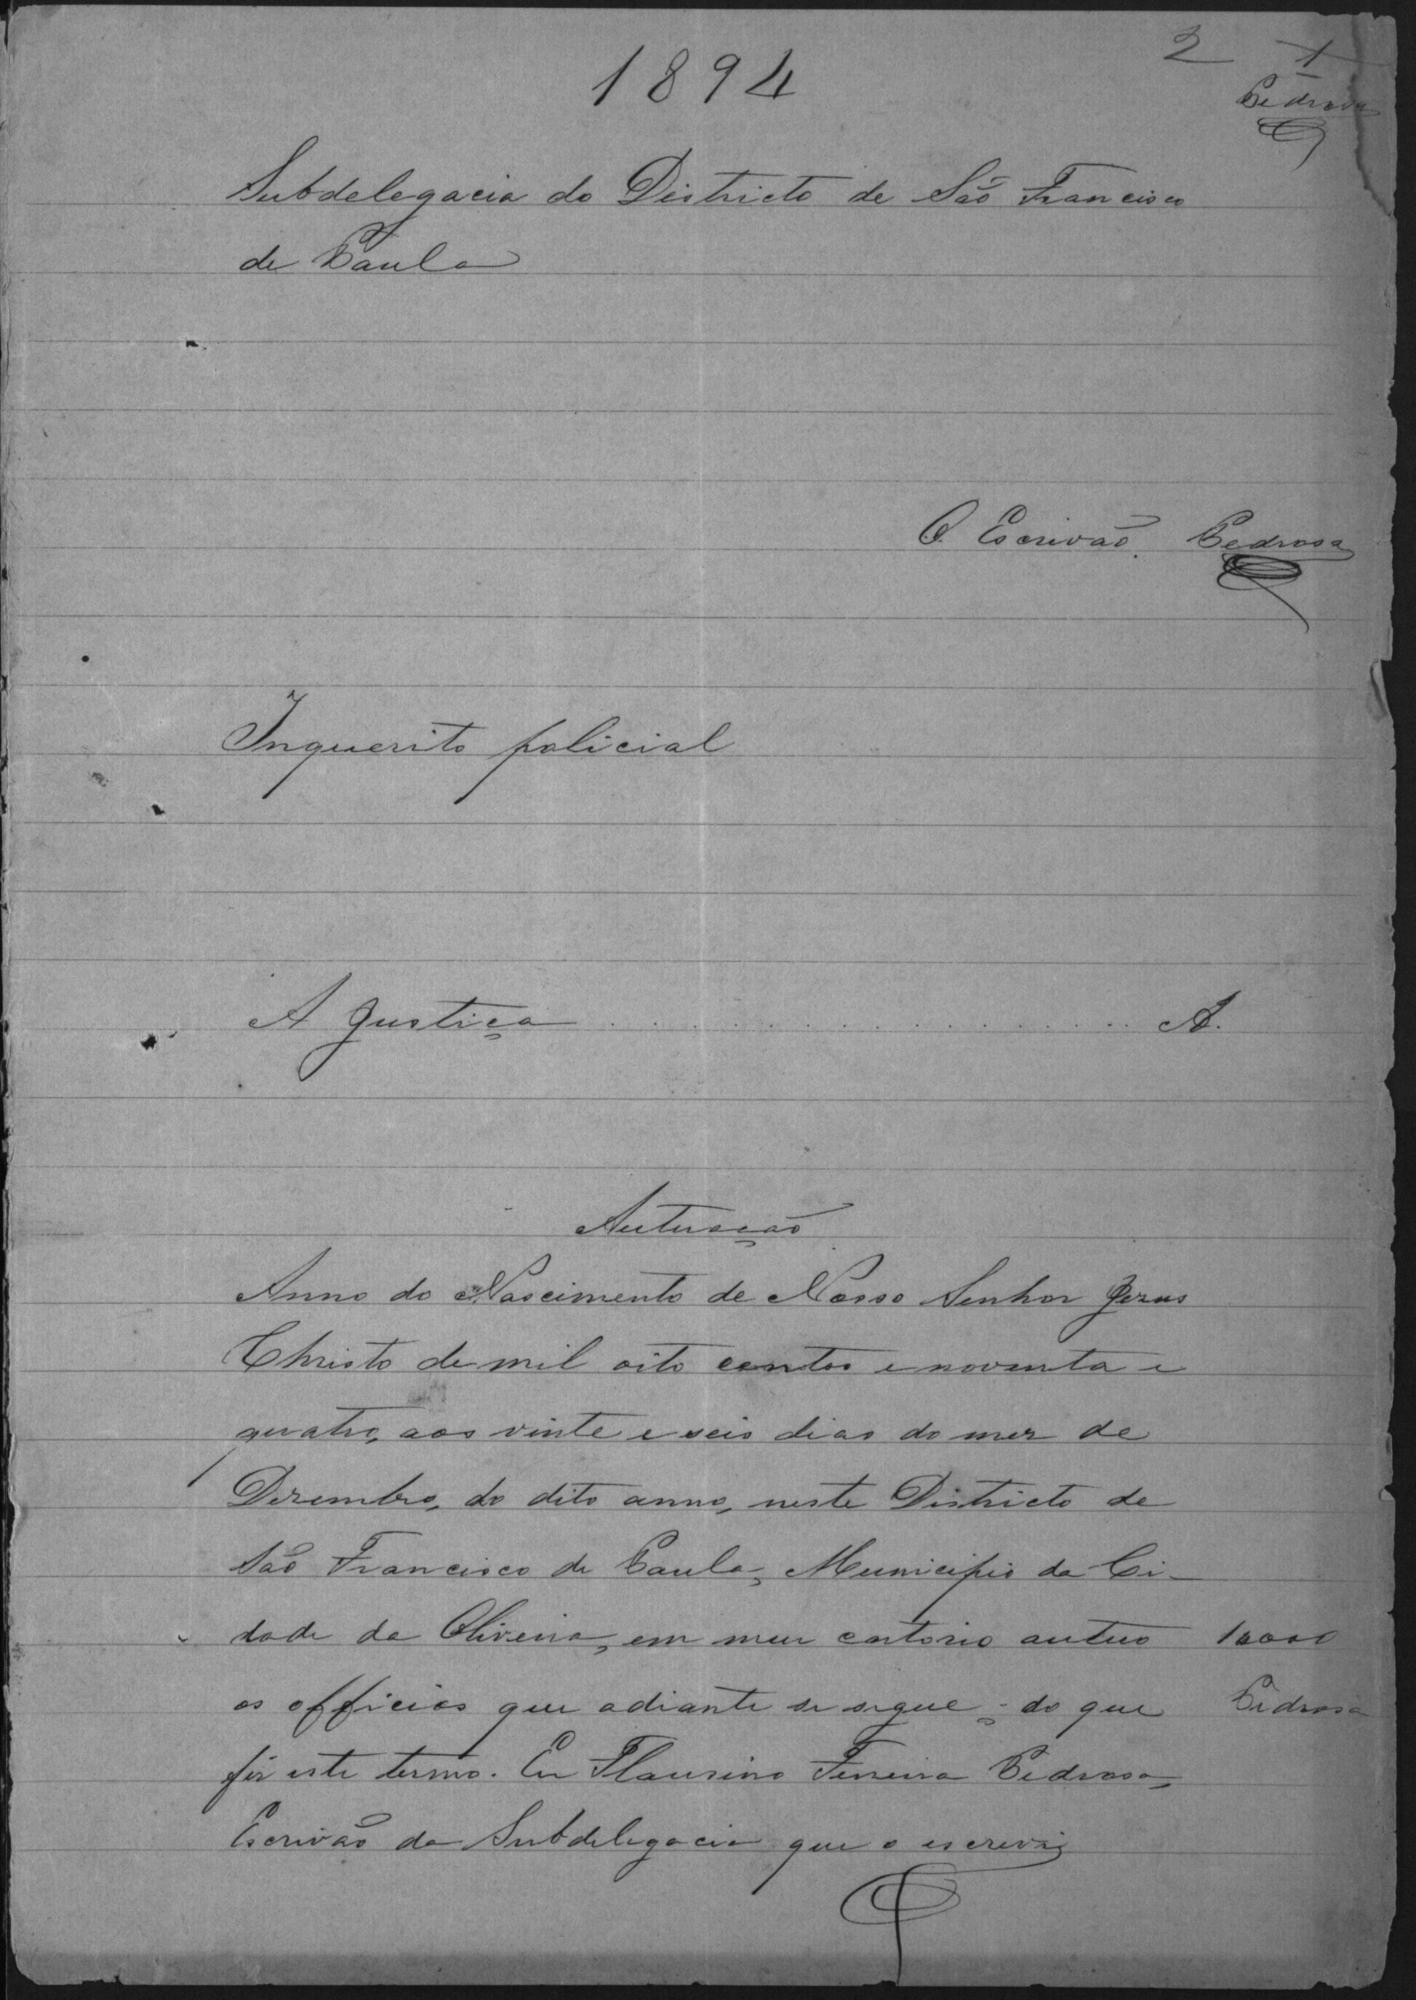 1894
2 1
Pedrosa
Subdelegacia do Districto de São Francisco
de Paula
O Escrivão. Pedrosa
Inquerito policial
A Justiça . . . . . . . . . . . . . . . . . . . A.
Autuação
Anno do Nascimento de Nosso Senhor Jezus
Christo de mil oito centos e noventa e
quatro, aos vinte e seis dias do mez de
Dezembro, do dito anno, neste Districto de
São Francisco de Paula, Municipio da Ci-
dade de Oliveira, em meu cartorio autuo
1000
os officios que adiante se segue; do que
Pedrosa
fiz este termo. Eu Flausino Ferreira Pedrosa,
Escrivão da Subdelegacia que o escrevi